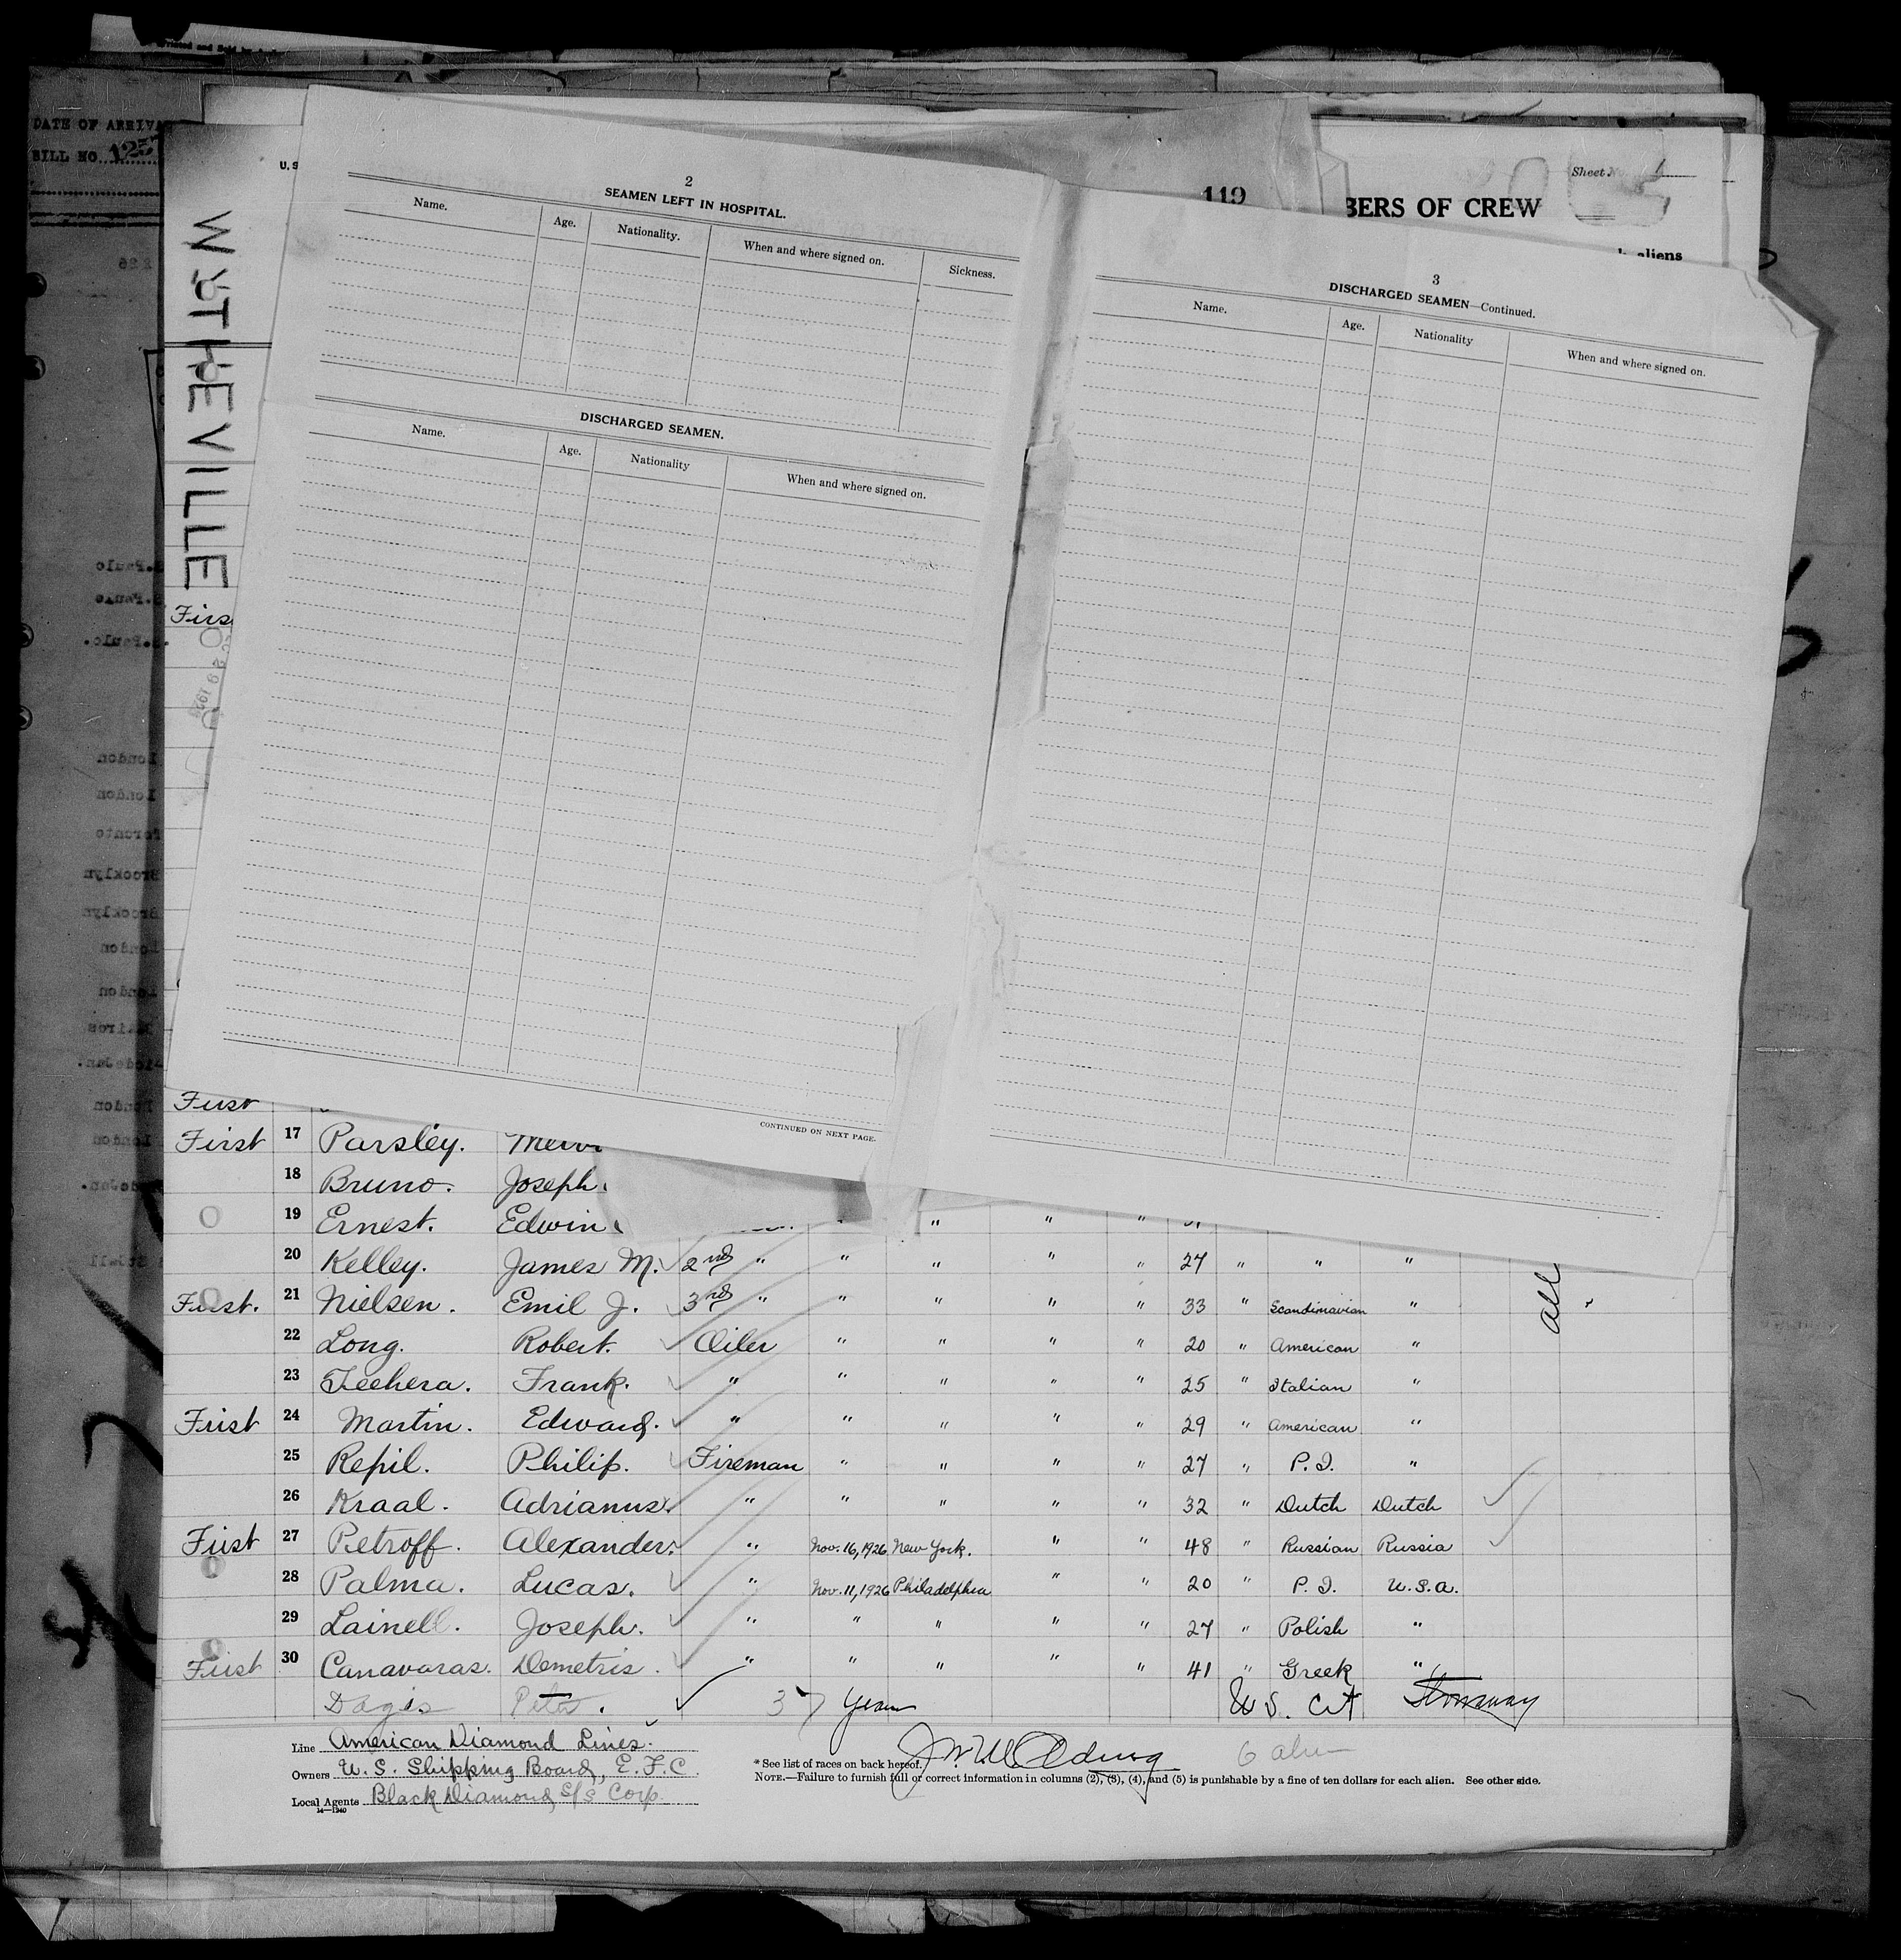 DATE OF ARRIVA
BILL NO.
U. S
WSTHEVILLE
2
SEAMEN LEFT IN HOSPITAL.
Name. Age. Nationality. When and where signed on. Sickness.
DISCHARGED SEAMEN.
Name. Age. Nationality When and where signed on.
CONTINUED ON NEXT PAGE.
119
BERS OF CREW
Sheet No. 1
aliens
3
DISCHARGED SEAMEN—Continued.
Name. Age. Nationality When and where signed on.
Firs
First
First 17 Parsley.
18 Bruno. Joseph.
19 Ernest. Edwin " " "
20 Kelley. James M. 2nd " " " " " 27 " " "
First. 21 Nielsen. Emil J. 3rd " " " " " 33 " Scandinavian "
all
22 Long. Robert. Oiler " " " " 20 " American "
23 Teehera. Frank. " " " " " 25 " Italian "
First 24 Martin. Edward. " " " " " 29 " American "
25 Repil. Philip. Fireman " " " " 27 " P.I. "
26 Kraal. Adrianus. " " " " " 32 " Dutch Dutch
First 27 Petroff. Alexander. " Nov. 16, 1926 New York. " " 48 " Russian Russia
28 Palma. Lucas. " Nov. 11, 1926 Philadelphia " " 20 " P.I. U.S.A.
29 Lainell. Joseph. " " " " " 27 " Polish "
First 30 Canavaras. Demetris. " " " " " 41 " Greek "
Dagis Peter. 37 years U.S. Cit Stowaway
Line American Diamond Lines.
Owners U. S. Shipping Board, E. F. C.
Local Agents Black Diamond S/S Corp.
14—1240
* See list of races on back hereof.
6
NOTE.—Failure to furnish full or correct information in columns (2), (3), (4), and (5) is punishable by a fine of ten dollars for each alien. See other side.